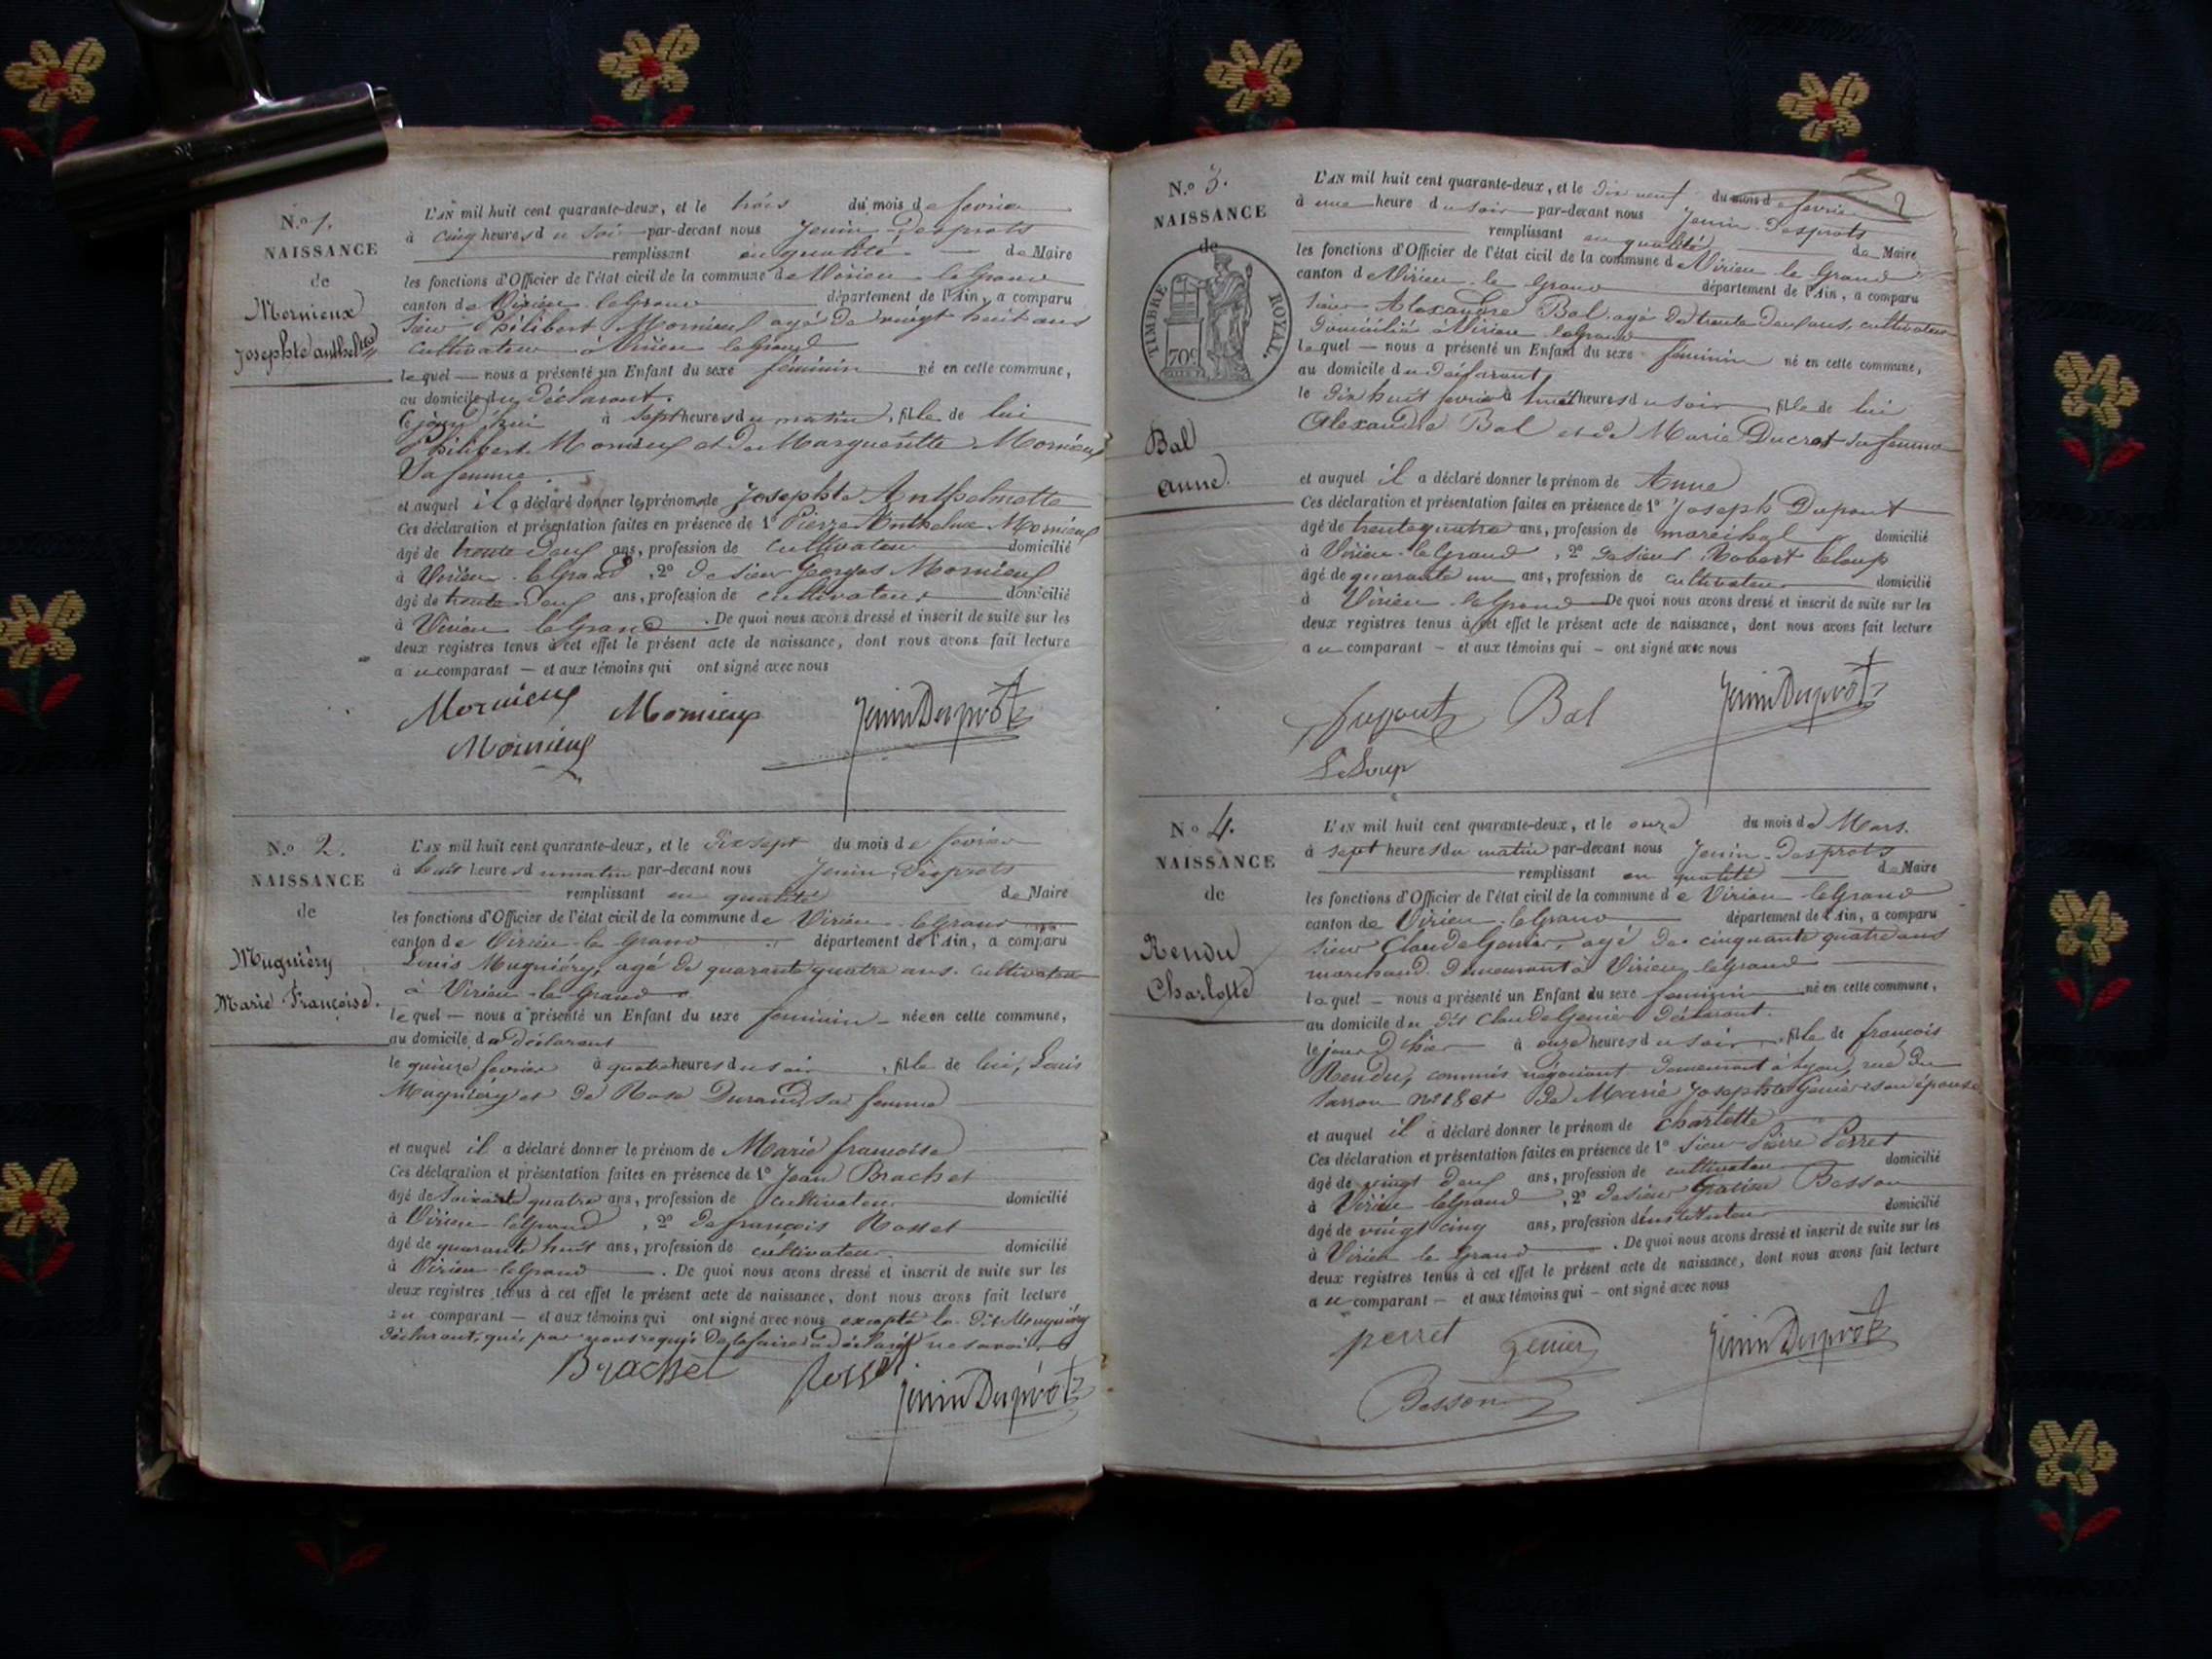 N.º 1.
NAISSANCE
de
Mornieux
Josephte anthelmette
L'AN mil huit cent quarante-deux, et le trois du mois de fevrier
à cinq heures du soir par-devant nous Jenin-Desprots
remplissant en qualité de Maire
les fonctions d'Officier de l'état civil de la commune de Virieu-le Grand
canton de Virieu-le Grand département de l'Ain, a comparu
Sieur Philibert Mornieux agé de vingt huit ans
cultivateur à Virieu le Grand
lequel — nous a présenté un Enfant du sexe féminin né en cette commune,
au domicile du déclarant.
Ce jourd'hui à Sept heures du matin, fille de lui
Philibert Mornieux et de Margueritte Mornieux
Sa femme.
et auquel il a déclaré donner les prénoms de Josephte Anthelmette
Ces déclaration et présentation faites en présence de 1º Pierre Anthelme Mornieux
âgé de trente deux ans, profession de cultivateur domicilié
à Virieu-le Grand, 2º de sieur Georges Mornieux
âgé de trente-deux ans, profession de cultivateur domicilié
à Virieu le Grand. De quoi nous avons dressé et inscrit de suite sur les
deux registres tenus à cet effet le présent acte de naissance, dont nous avons fait lecture
au comparant — et aux témoins qui ont signé avec nous
Mornieux Mornieux Jenin Desprots
Mornieux
N.º 2.
NAISSANCE
de
Mugniéry
Marie Françoise.
L'AN mil huit cent quarante-deux, et le dix sept du mois de fevrier
à huit heures du matin par-devant nous Jenin-Desprots
remplissant en qualité de Maire
les fonctions d'Officier de l'état civil de la commune de Virieu-le Grand
canton de Virieu-le Grand département de l'Ain, a comparu
Louis Mugniéry, agé de quarante quatre ans. cultivateur
à Virieu-le Grand
lequel — nous a présenté un Enfant du sexe feminin — née en cette commune,
au domicile du déclarant
le quinze fevrier à quatre heures du soir, fille de lui, Louis
Mugniéry et de Rose Durand, sa femme
et auquel il a déclaré donner le prénom de Marie françoise
Ces déclaration et présentation faites en présence de 1º Jean Brachet
âgé de soixante quatre ans, profession de cultivateur domicilié
à Virieu-le Grand, 2º de françois Rosset
âgé de quarante huit ans, profession de cultivateur domicilié
à Virieu-le Grand. De quoi nous avons dressé et inscrit de suite sur les
deux registres tenus à cet effet le présent acte de naissance, dont nous avons fait lecture
au comparant — et aux témoins qui ont signé avec nous excepté le dit Mugniéry
déclarant, qui, par nous requis de le faire a déclaré ne savoir
Brachet Rosset
Jenin Desprots
N.º 3.
NAISSANCE
de
TIMBRE ROYAL.
70c
Bal
anne.
L'AN mil huit cent quarante-deux, et le dix neuf du mois de fevrier
à une heure du soir par-devant nous Jenin-Desprots
remplissant en qualité de Maire
les fonctions d'Officier de l'état civil de la commune de Virieu le Grand
canton de Virieu-le Grand département de l'Ain, a comparu
sieur Alexandre Bal agé de trente deux ans, cultivateur
domicilié à Virieu le Grand
lequel — nous a présenté un Enfant du sexe féminin né en cette commune,
au domicile du déclarant,
le dix huit fevrier à heures du soir, fille de lui
Alexandre Bal et de Marie Ducrot sa femme
et auquel il a déclaré donner le prénom de Anne
Ces déclaration et présentation faites en présence de 1º Joseph Dupont
âgé de trente quatre ans, profession de maréchal domicilié
à Virieu-le Grand, 2º de sieur Robert Leloup
âgé de quarante un ans, profession de cultivateur domicilié
à Virieu-le Grand De quoi nous avons dressé et inscrit de suite sur les
deux registres tenus à cet effet le présent acte de naissance, dont nous avons fait lecture
au comparant — et aux témoins qui — ont signé avec nous
Dupont Bal Jenin Desprots
LeLoup
N.º 4.
NAISSANCE
de
Rendu
Charlotte
L'AN mil huit cent quarante-deux, et le onze du mois de Mars.
à sept heures du matin par-devant nous Jenin-Desprots
remplissant en qualité de Maire
les fonctions d'Officier de l'état civil de la commune de Virieu-le Grand
canton de Virieu-le Grand département de l'Ain, a comparu
sieur Claude Genier, agé de cinquante quatre ans
marchand demeurant à Virieu le Grand
lequel — nous a présenté un Enfant du sexe feminin né en cette commune,
au domicile du dit Claude Genier déclarant.
le jour d'hier à onze heures du soir, fille de françois
Rendu, commis négociant demeurant à Lyon, rue du
Sarron nº 18 et de Marie Josephte Genier son épouse
et auquel il a déclaré donner le prénom de Charlotte
Ces déclaration et présentation faites en présence de 1º Sieur Pierre Perret
âgé de vingt deux ans, profession de cultivateur domicilié
à Virieu le Grand, 2º de sieur Besson
âgé de vingt cinq ans, profession d'instituteur domicilié
à Virieu le Grand. De quoi nous avons dressé et inscrit de suite sur les
deux registres tenus à cet effet le présent acte de naissance, dont nous avons fait lecture
au comparant — et aux témoins qui — ont signé avec nous
perret Genier Jenin Desprots
Besson